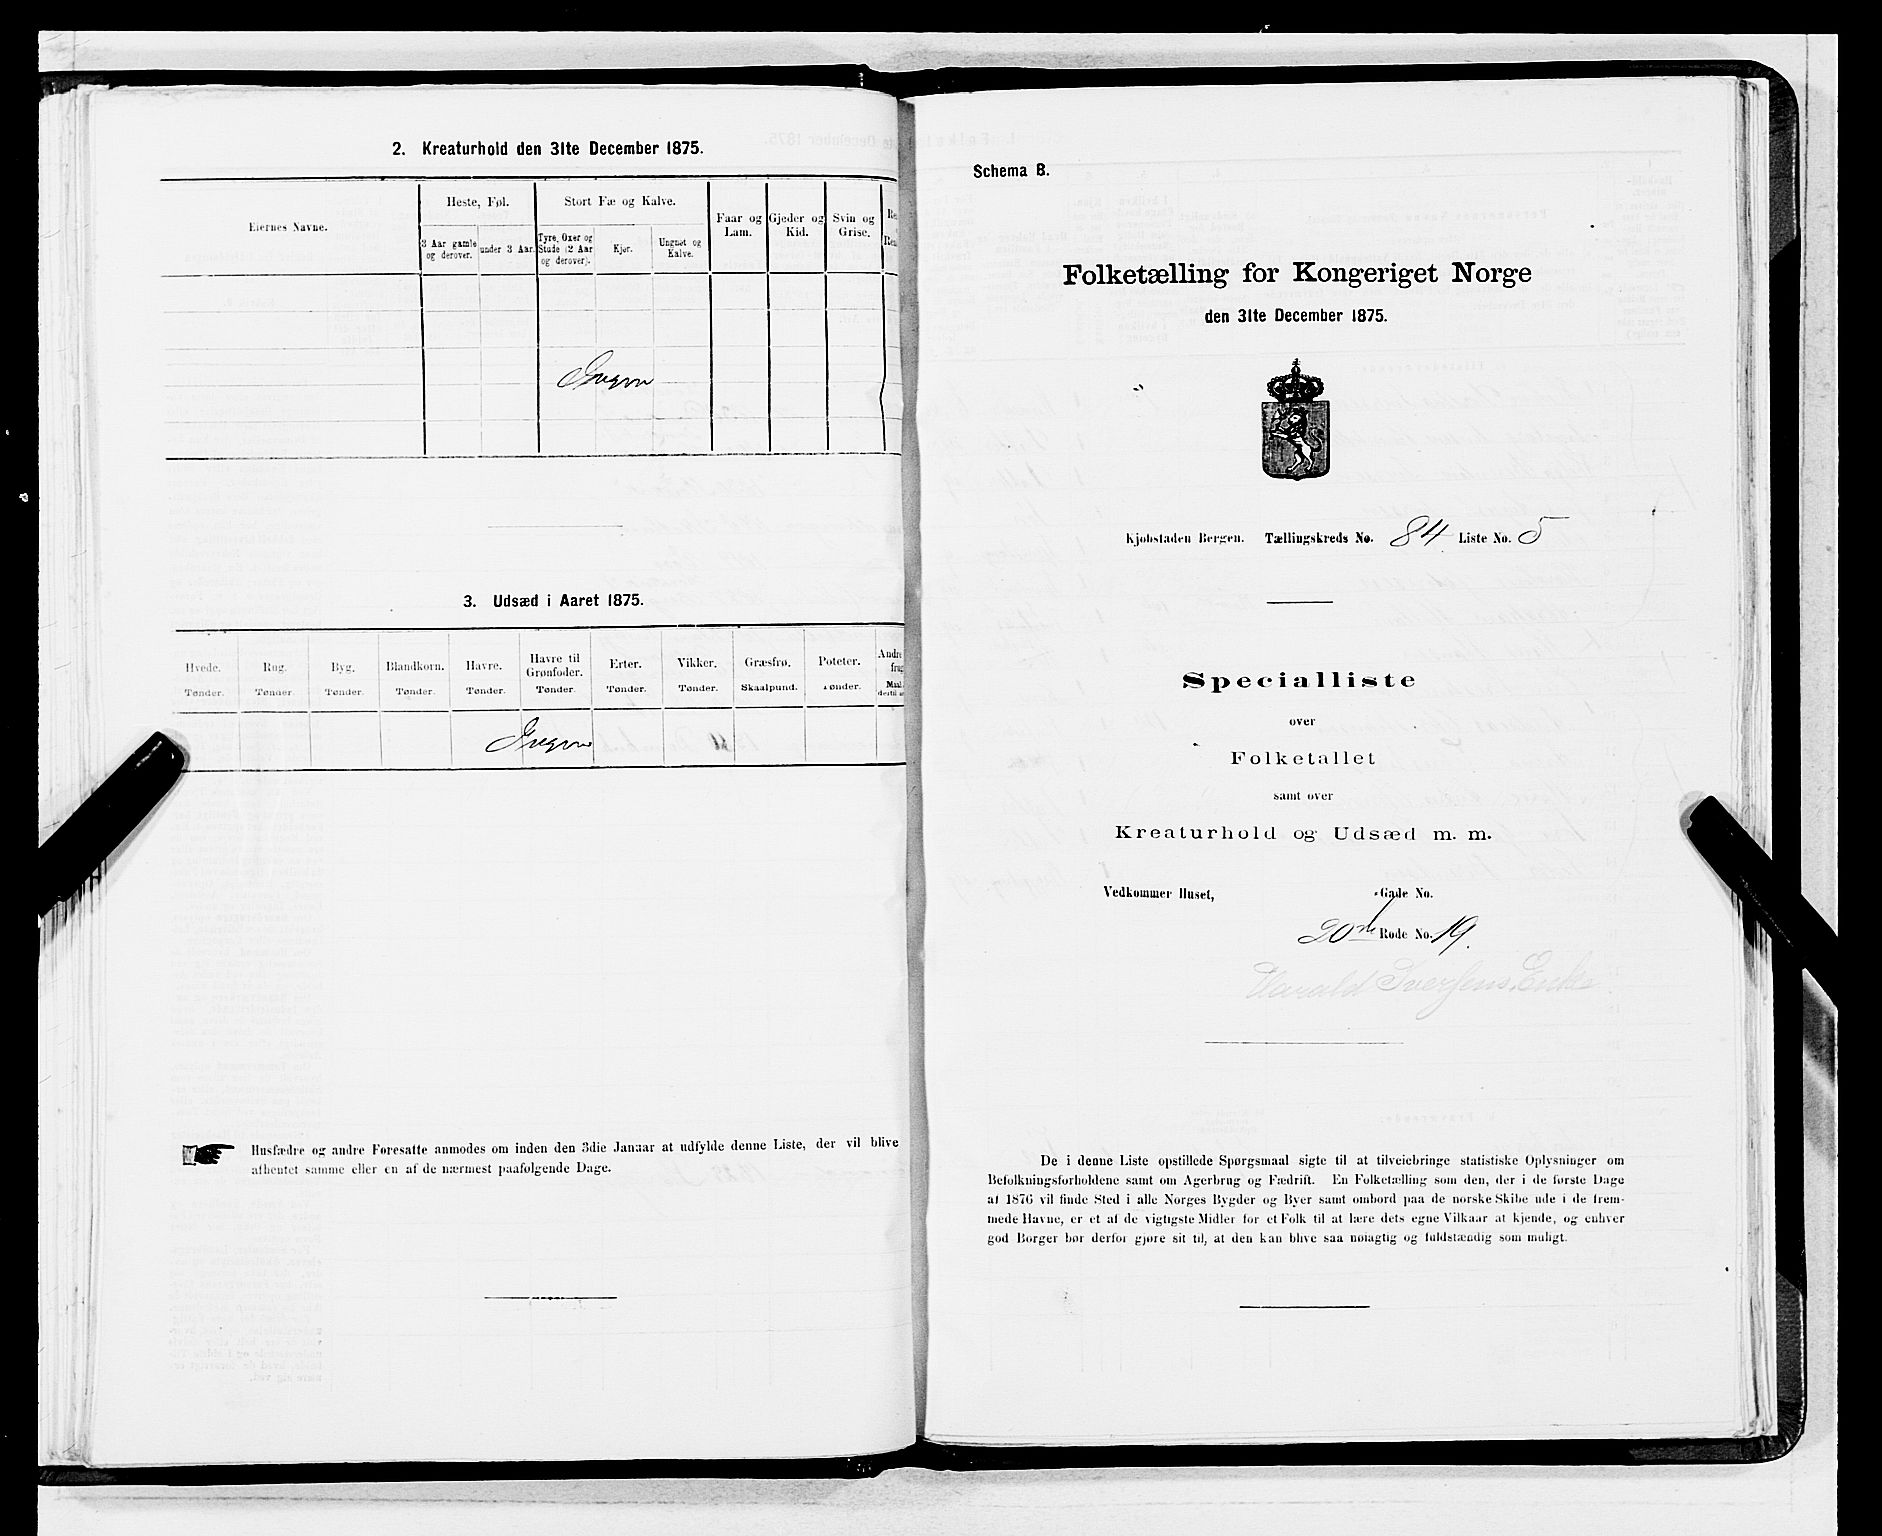 2. Kreaturhold den 31te December 1875.
Eiernes Navne.
Heste, Føl.
Stort Fæ og Kalve.
Faar og Lam.
Gjeder og Kid.
Svin og Grise.
3 Aar gamle og derover.
under 3 Aar.
Tyre, Oxer og Stude (2 Aar og derover).
Kjør.
Ungnøt og Kalve.
Ingen
3. Udsæd i Aaret 1875.
Hvede. Rug. Byg. Blandkorn. Havre. Havre til Grønfoder. Erter. Vikker. Græsfrø. Poteter. Andre
Tønder. Tønder. Tønder. Tønder. Tønder. Tønder. Tønder. Tønder. Skaalpund. Tønder.
Ingen
Husfædre og andre Foresatte anmodes om inden den 3die Januar at udfylde denne Liste, der vil blive
afhentet samme eller en af de nærmest paafølgende Dage.
Schema B.
Folketælling for Kongeriget Norge
den 31te December 1875.
Kjøbstaden Bergen. Tællingskreds No. 84 Liste No. 5
Specialliste
over
Folketallet
samt over
Kreaturhold og Udsæd m. m.
Vedkommer Huset, -Gade No.
20de Rode No. 19.
Harald Iversens Enke
De i denne Liste opstillede Spørgsmaal sigte til at tilveiebringe statistiske Oplysninger om
Befolkningsforholdene samt om Agerbrug og Fædrift. En Folketælling som den, der i de første Dage
af 1876 vil finde Sted i alle Norges Bygder og Byer samt ombord paa de norske Skibe ude i de frem-
mede Havne, er et af de vigtigste Midler for et Folk til at lære dets egne Vilkaar at kjende, og enhver
god Borger bør derfor gjøre sit til, at den kan blive saa nøiagtig og fuldstændig som muligt.